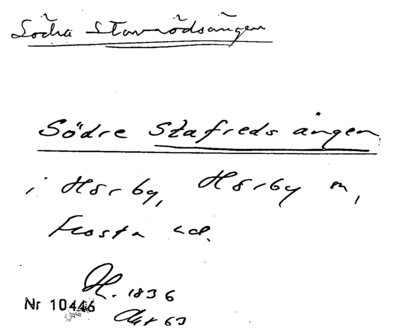 Södra Stavrödsängen
Södre Stafreds ängen
i Hörby, Hörby sn,
Frosta hd.
H. 1836
Akt 63
Nr 10446